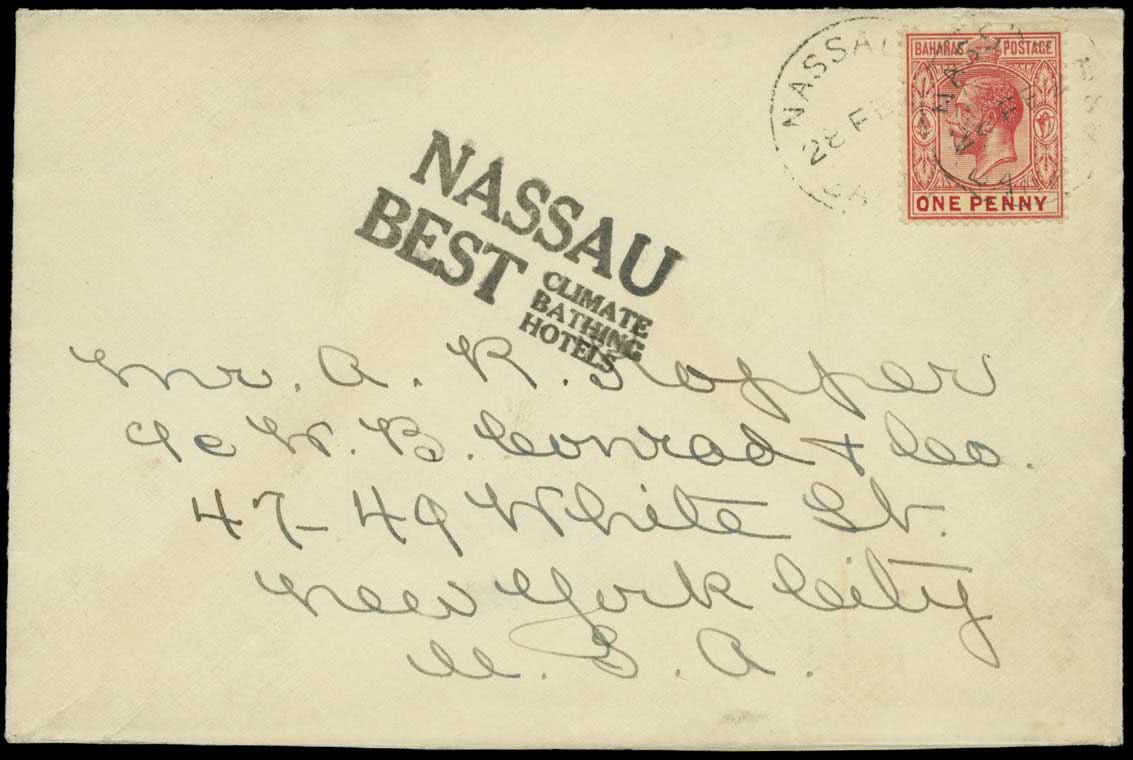 NASSAU
28 FE
BAHAMAS POSTAGE
ONE PENNY
NASSAU
BEST
CLIMATE
BATHING
HOTELS
Mr. A. R. Hopper
c/o W. B. Conrad + Co.
47-49 White St.
New York City
U. S. A.